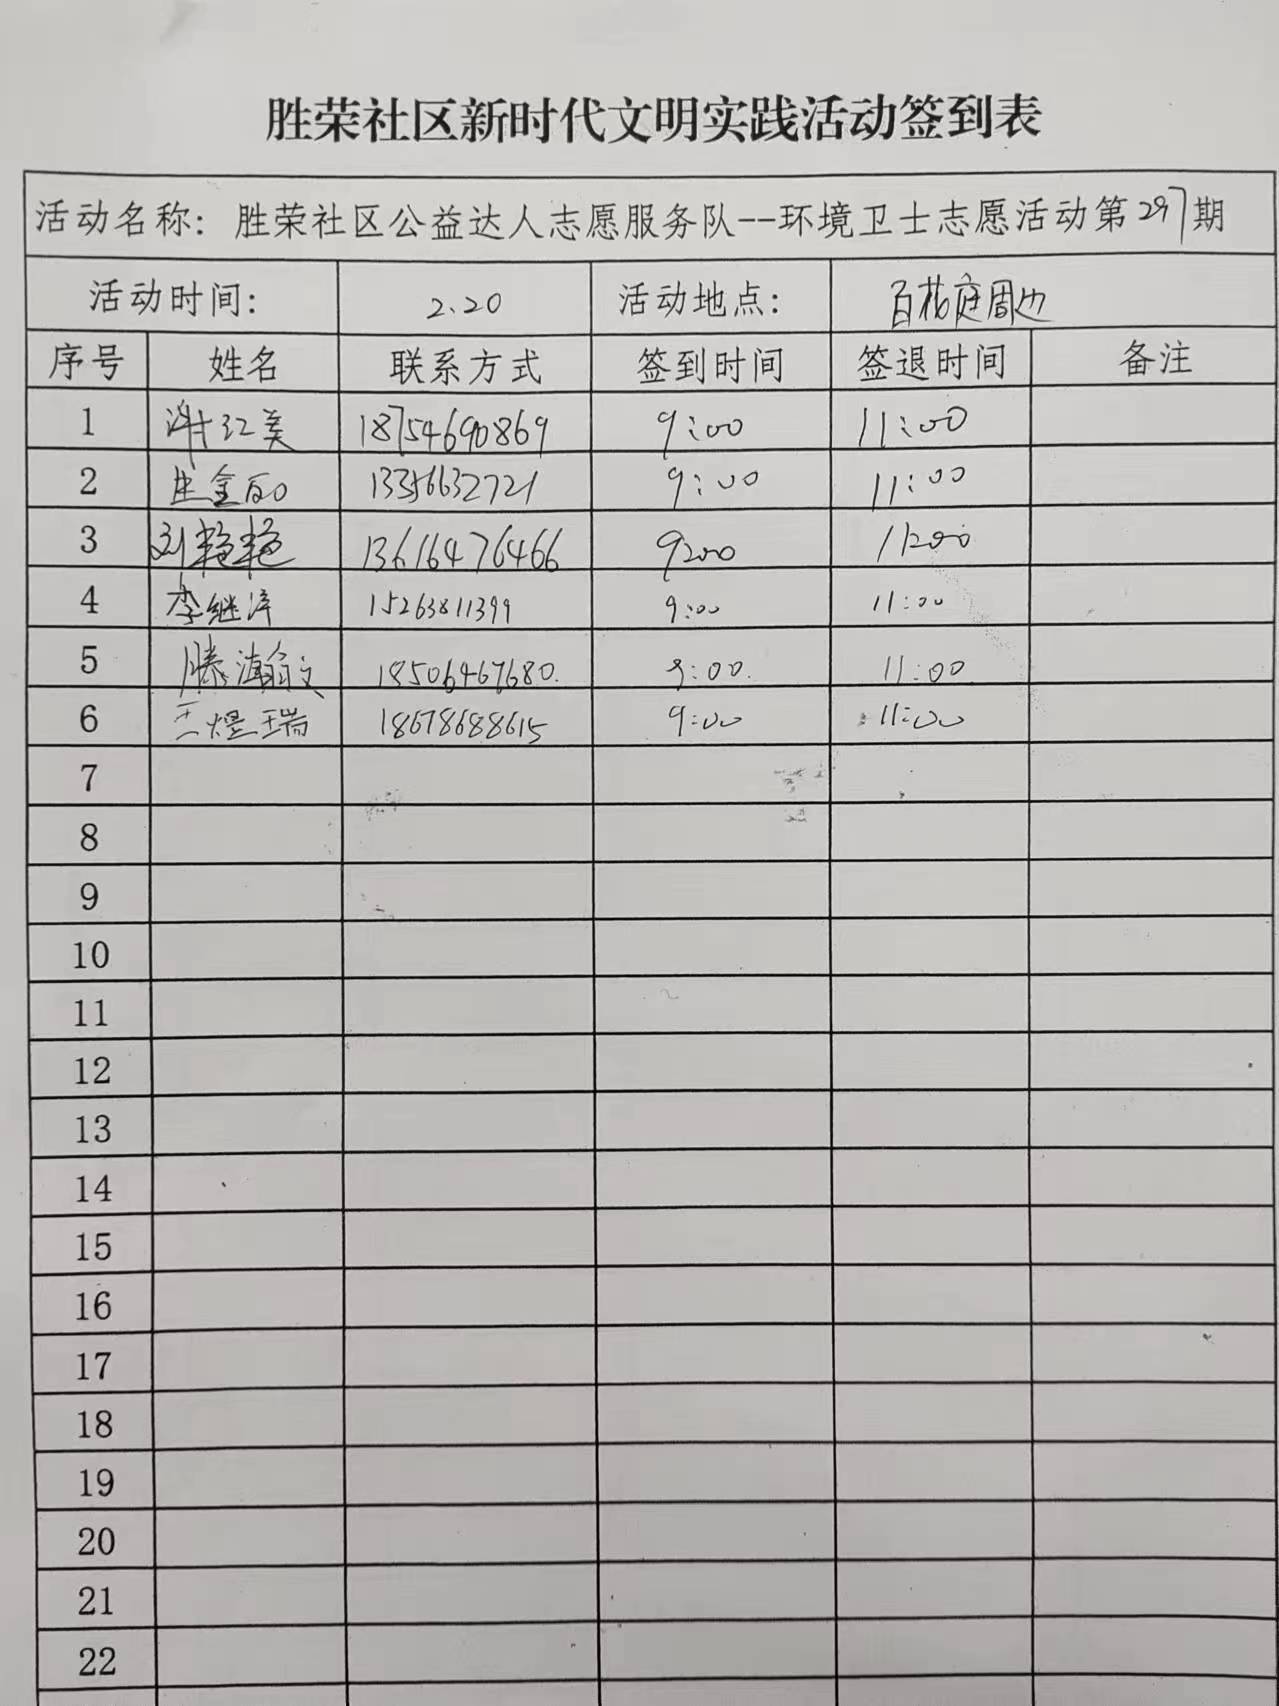 胜荣社区新时代文明实践活动签到表
活动名称：胜荣社区公益达人志愿服务队--环境卫士志愿活动第297期
活动时间： 2.20 活动地点： 百花庭周边
序号 姓名 联系方式 签到时间 签退时间 备注
1 谢红美 18754690869 9:00 11:00
2 13356632721 9:00 11:00
3 刘艳艳 13616476466 9:00 11:00
4 李继萍 15263811399 9:00 11:00
5 滕瀚文 18506467680. 9:00. 11:00
6 王煜瑞 18678688615 9:00 11:00
7
8
9
10
11
12
13
14
15
16
17
18
19
20
21
22